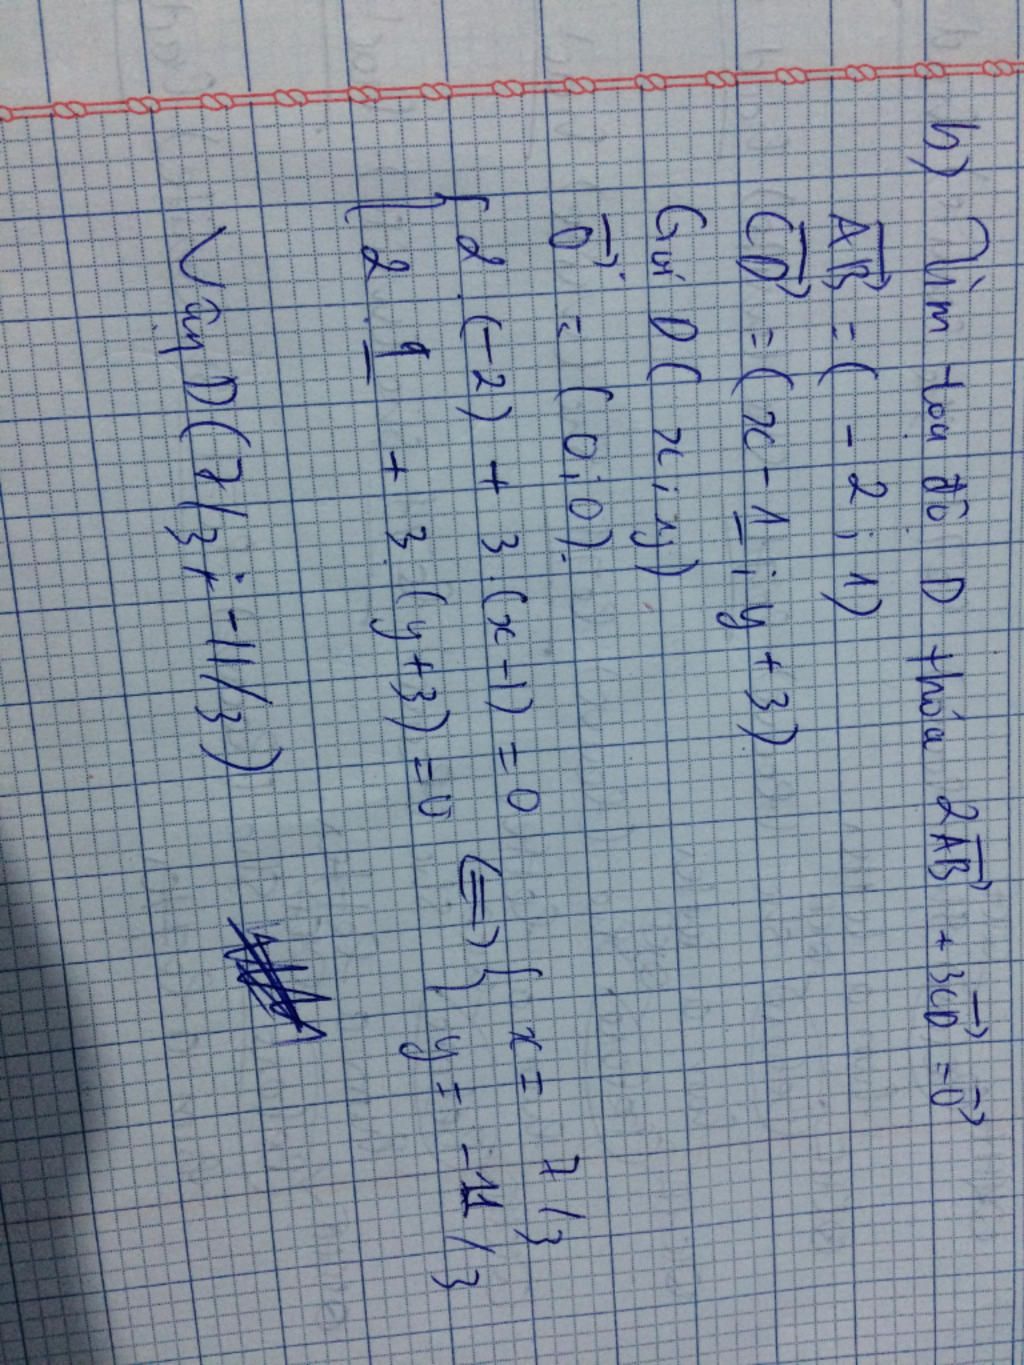 b) Tìm toạ độ D thỏa 2AB⃗ + 3CD⃗ = 0⃗
AB⃗ = (-2; 1)
CD⃗ = (x-1; y+3)
Gọi D(x; y)
0⃗ = (0; 0).
{ 2.(-2) + 3.(x-1) = 0
{ 2.1 + 3.(y+3) = 0 <=> { x = 7/3
{ y = -11/3
Vậy D(7/3; -11/3)